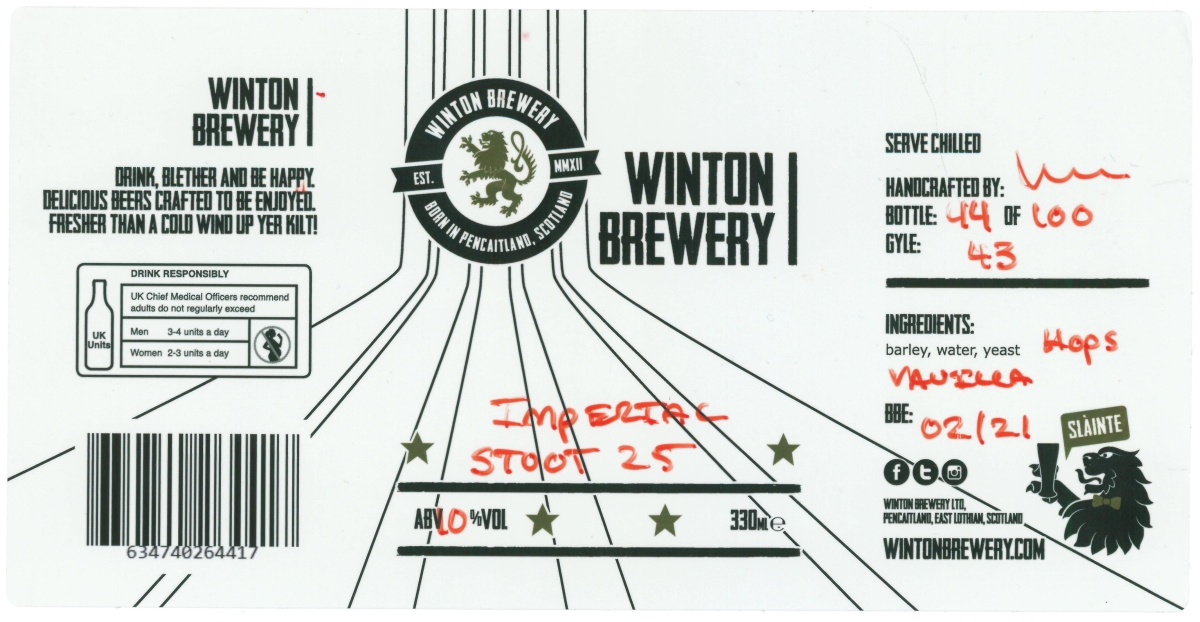 WINTON
BREWERY
DRINK, BLETHER AND BE HAPPY.
DELICIOUS BEERS CRAFTED TO BE ENJOYED.
FRESHER THAN A COLD WIND UP YER KILT!
DRINK RESPONSIBLY
UK Units
UK Chief Medical Officers recommend
adults do not regularly exceed
Men 3-4 units a day
Women 2-3 units a day
634740264417
WINTON BREWERY
EST. MMXII
BORN IN PENCAITLAND, SCOTLAND
WINTON
BREWERY
IMPERIAL
STOOT 25
ABV 10 %VOL
330ML e
SERVE CHILLED
HANDCRAFTED BY:
BOTTLE: 44 OF 100
GYLE: 43
INGREDIENTS:
barley, water, yeast Hops
VANILLA
BBE: 02/21
SLÀINTE
WINTON BREWERY LTD,
PENCAITLAND, EAST LOTHIAN, SCOTLAND
WINTONBREWERY.COM